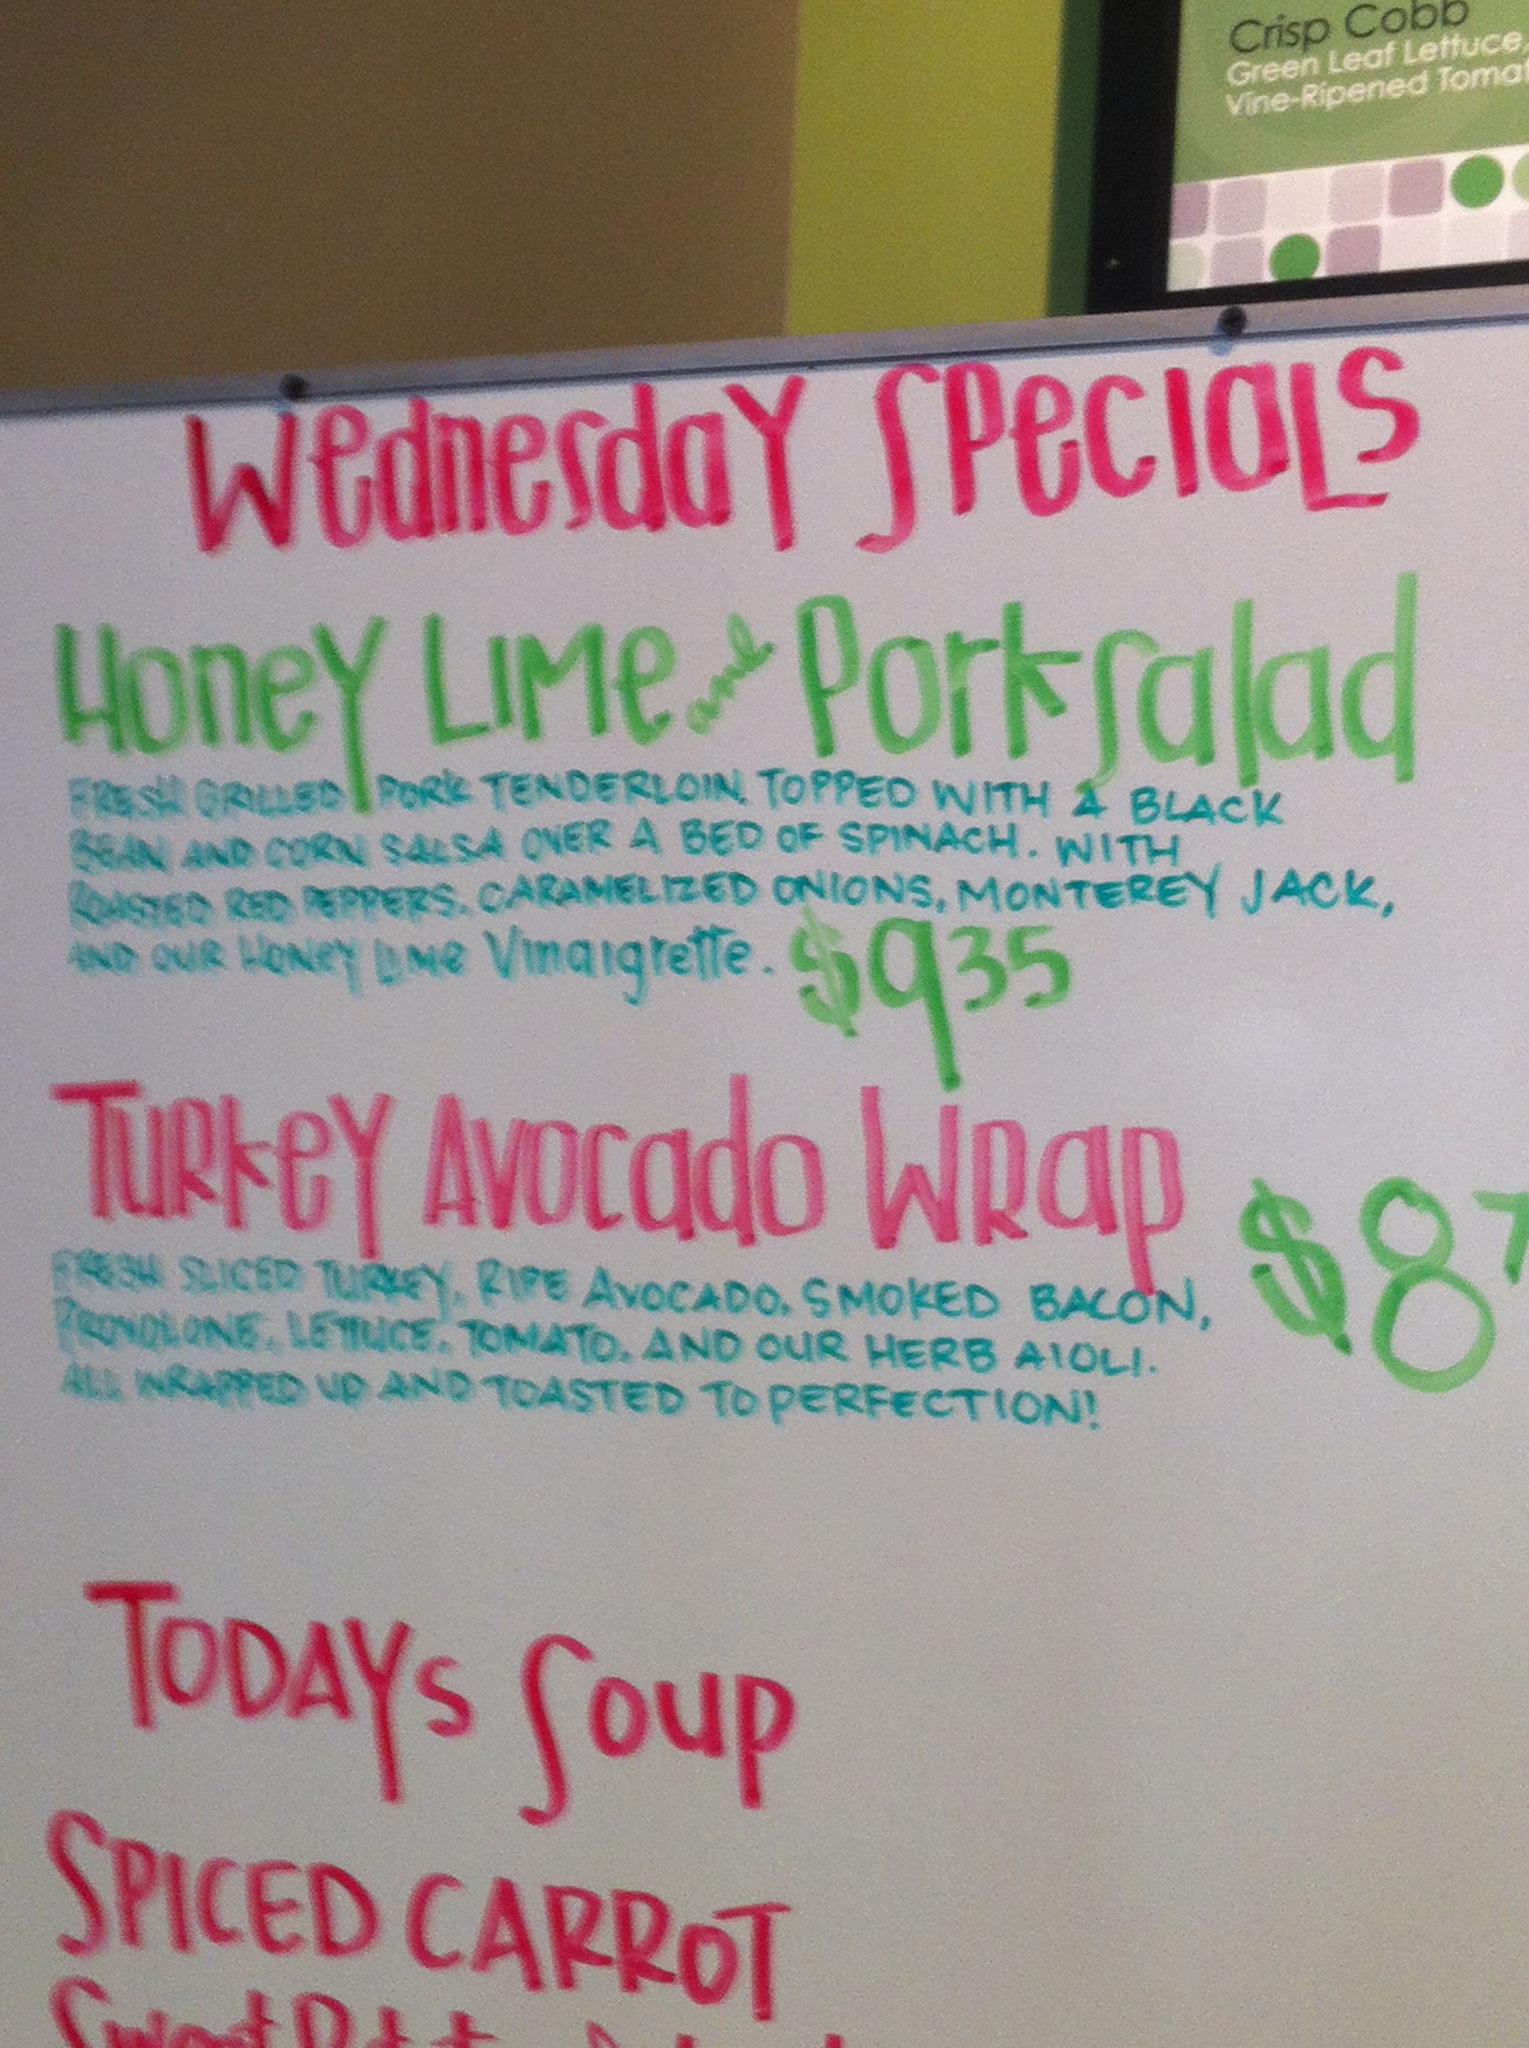 Crisp Cobb
Green Leaf Lettuce,
Vine-Ripened
Wednesday Specials
Honey Lime and Pork Salad
FRESH GRILLED PORK TENDERLOIN TOPPED WITH A BLACK
BEAN AND CORN SALSA OVER A BED OF SPINACH. WITH
ROASTED RED PEPPERS, CARAMELIZED ONIONS, MONTEREY JACK,
AND OUR HONEY LIME Vinaigrette. $935
Turkey Avocado Wrap
$87
FRESH SLICED TURKEY, RIPE AVOCADO, SMOKED BACON,
PROVOLONE, LETTUCE, TOMATO, AND OUR HERB AIOLI.
ALL WRAPPED UP AND TOASTED TO PERFECTION!
TODAYS Soup
SPICED CARROT
Sweet